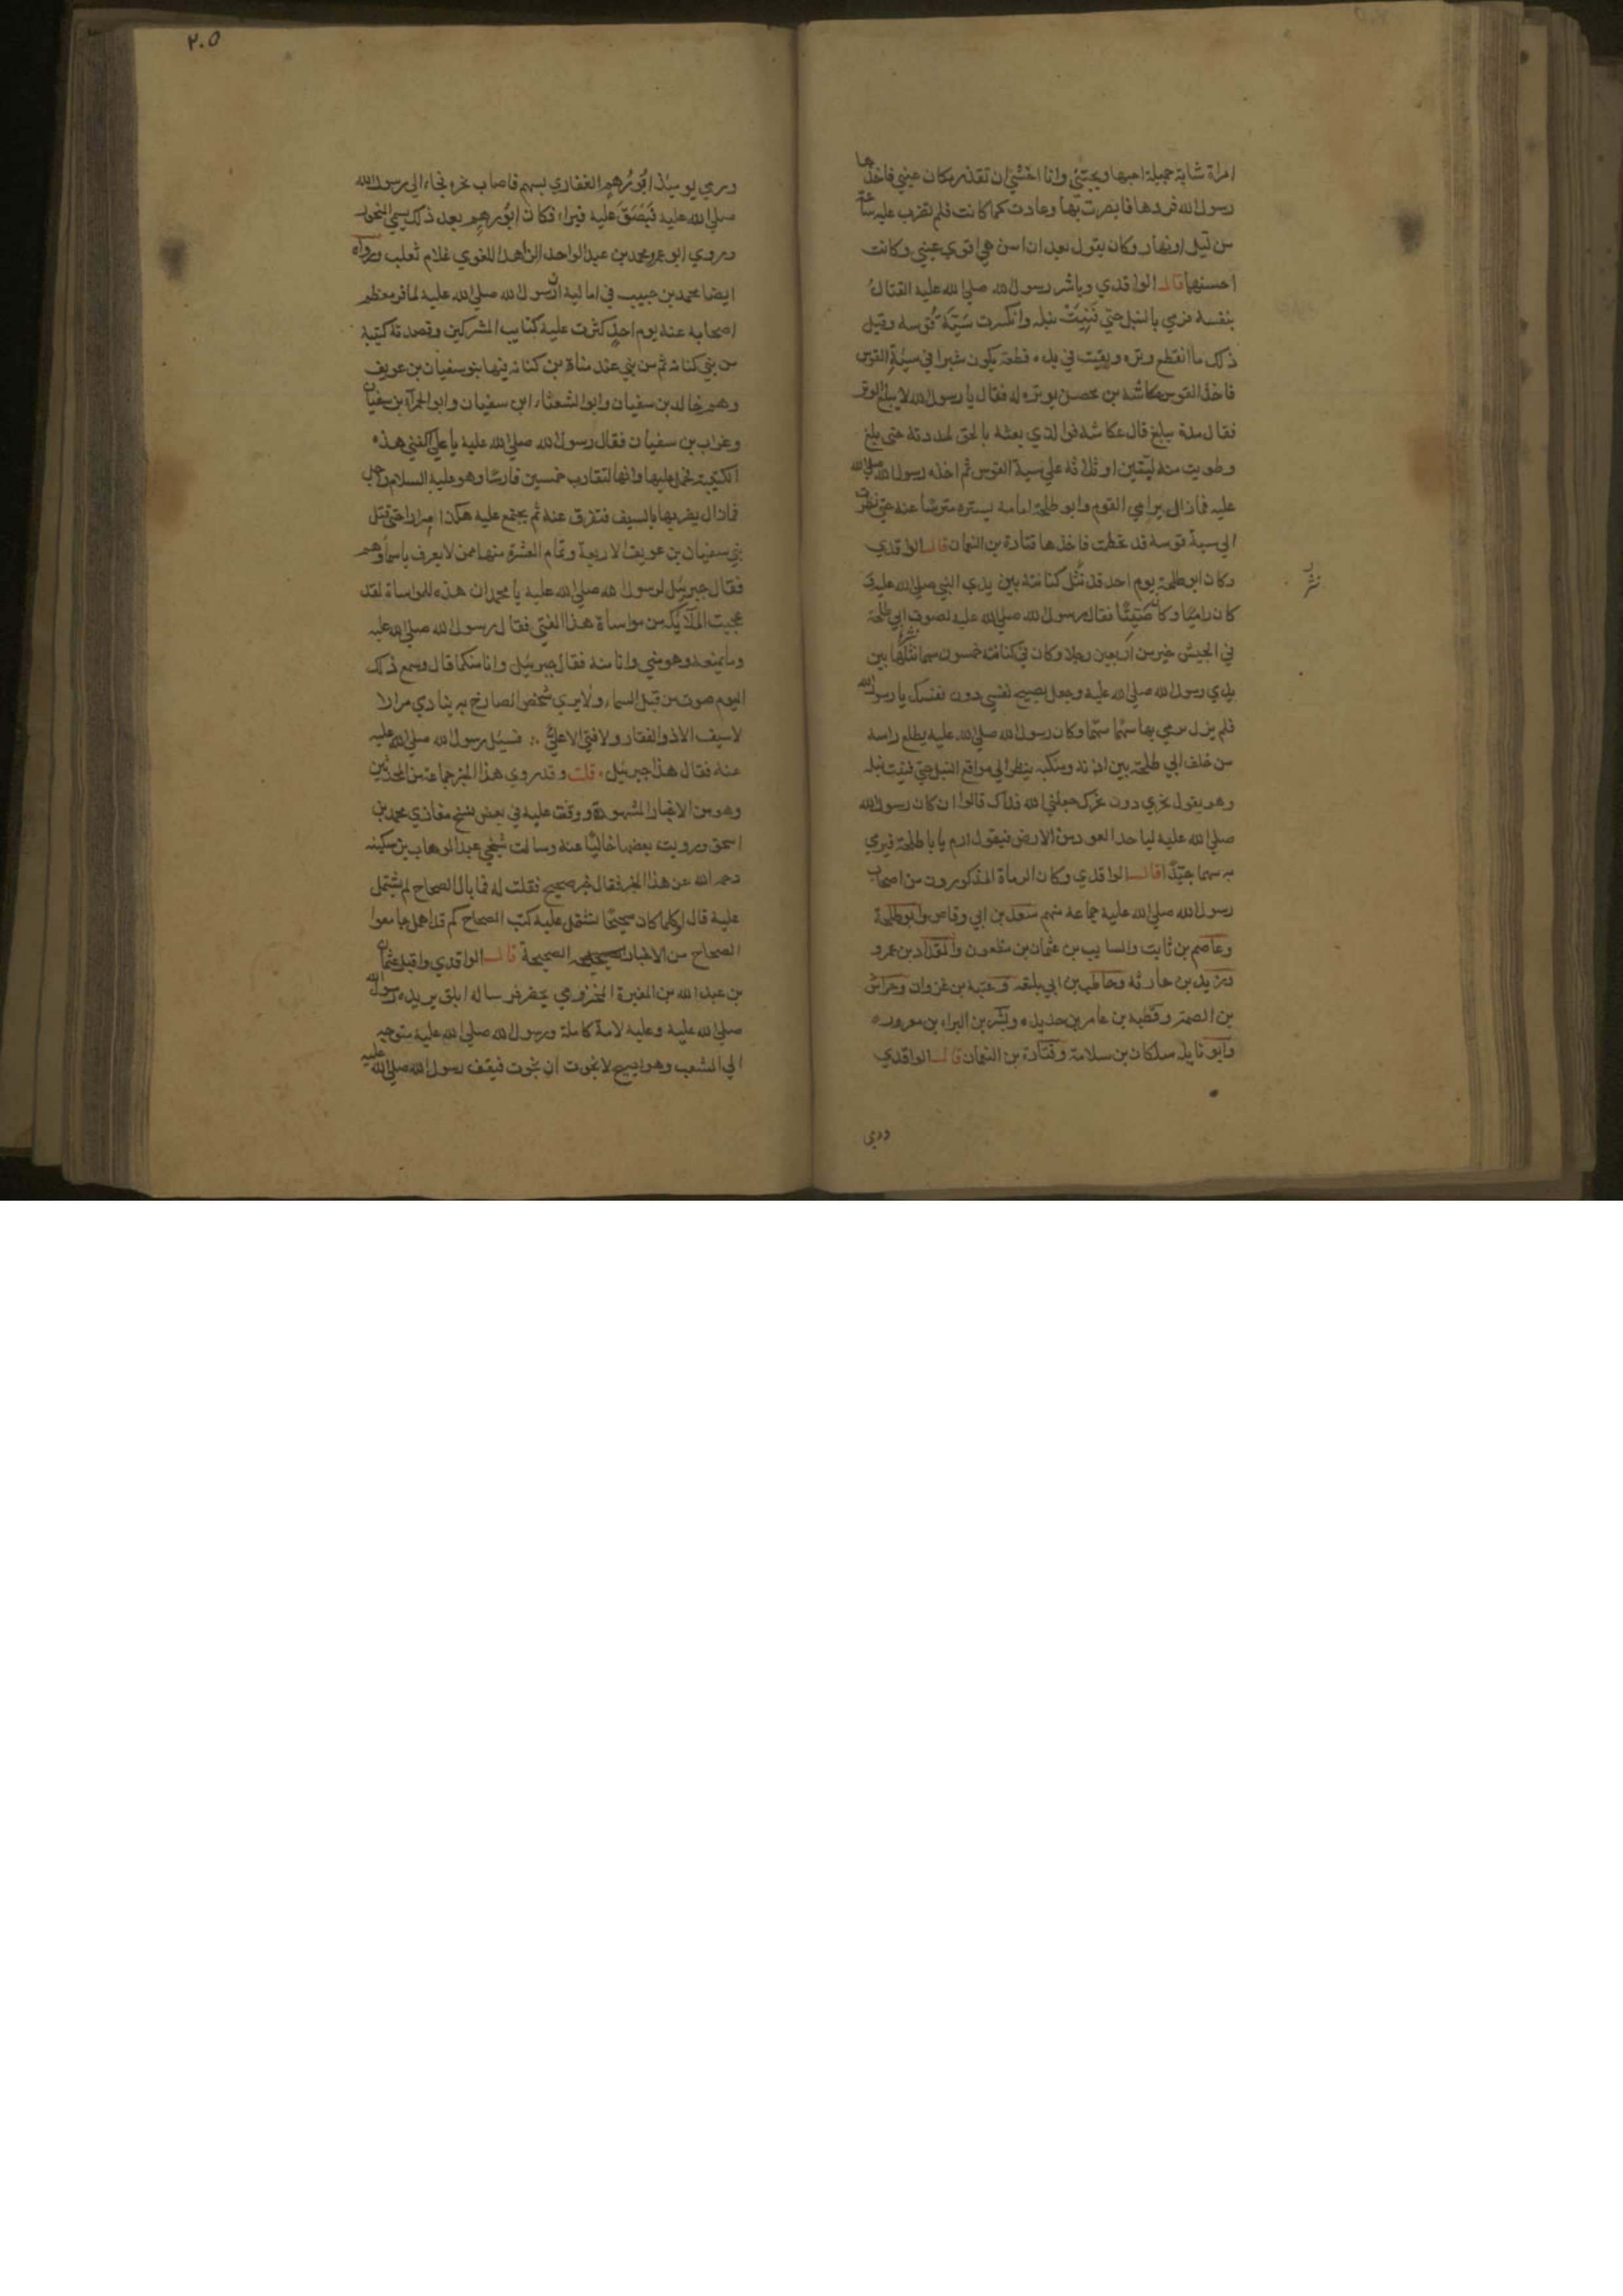 امراة شابة جميلة احبها وتحبني وانا اخشي ان تقذر مكان عيني فاخذها
رسول الله فردها فابصرت بها وعادت كما كانت فلم تضرب عليه ساعة
من ليل او نهار وكان يقول بعد ان اسن هي اقوي عيني وكانت
احسنها قال الواقدي وباشر رسول الله صلي الله عليه القتال
بنفسه فرمي بالنبل حتي فنيت نبله وانكسرت سية قوسه وقبل
ذلك ما انقطع وتره وبقيت في يده قطعة يكون شبرا في سية القوس
فاخذ القوس عكاشه بن محصن يوتره له فقال يا رسول الله لا يبلغ الوتر
فقال مده يبلغ قال عكاشه فوالذي بعثه بالحق لمددته حتي بلغ
وطويت منه ليتين او ثلاثة علي سية القوس ثم اخذه رسول الله صلي الله
عليه فما زال يرامي القوم وابو طلحة امامه يستره مترسا عنه حتي نظرت
الي سية قوسه قد تحطمت فاخذها قتادة بن النعمان قال الواقدي
وكان ابو طلحة يوم احد قد نثل كنانته بين يدي النبي صلي الله عليه و
نثر
كان راميا وكان صيتا فقال رسول الله صلي الله عليه لصوت ابي طلحة
في الجيش خير من اربعين رجلا وكان في كنانته خمسون سهما نثلها بين
يدي رسول الله صلي الله عليه وجعل يصيح نفسي دون نفسك يا رسول الله
فلم يزل يرمي بها سهما سهما وكان رسول الله صلي الله عليه يطلع راسه
من خلف ابي طلحة بين اذنه ومنكبه ينظر الي مواقع النبل حتي فنيت نبله
وهو يقول نحري دون نحرك جعلني الله فداك قالوا ان كان رسول الله
صلي الله عليه لياخذ العود من الارض فيقول ارم يا با طلحة فيرمي
به سهما جيدا قال الواقدي وكان الرماة المذكورون من اصحاب
رسول الله صلي الله عليه جماعة منهم سعد بن ابي وقاص وابو طلحة
وعاصم بن ثابت والسايب بن عثمان بن مظعون والمقداد بن عمرو
وزيد بن حارثة وحاطب بن ابي بلتعه وعتبة بن غزوان وخراش
بن الصمة وقطبه بن عامر بن حديده وبشر بن البراء بن معروره
وابو نايله سلكان بن سلامة وقتادة بن النعمان قال الواقدي
ورمي
٢٠٥
ورمي يوميذ ابو رهم الغفاري بسهم فاصاب نحره فجاء الي رسول الله
صلي الله عليه فبصق عليه فبراء فكان ابو رهم بعد ذلك يسمي المنحور
وروي ابو عمر محمد بن عبد الواحد الزاهد اللغوي غلام ثعلب ورواه
ايضا محمد بن حبيب في اماليه ان رسول الله صلي الله عليه لما فر معظم
اصحابه عنه يوم احد كثرت عليه كتايب المشركين وقصدته كتيبة
من بني كنانه ثم من بني عبد مناة بن كنانه فيها بنو سفيان بن عويف
وهم خالد بن سفيان وابو الشعثاء ابن سفيان وابو الحمراء بن سفيان
وغراب بن سفيان فقال رسول الله صلي الله عليه يا علي اكفني هذه
الكتيبة فحمل عليها وانها لتقارب خمسين فارسا وهو عليه السلام راجل
فما زال يضربها بالسيف فتفرق عنه ثم يجتمع عليه هكذا مرارا حتي قتل
بني سفيان بن عويف الاربعة وتمام العشرة منها ممن لا يعرف باسمائهم
فقال جبرئيل لرسول الله صلي الله عليه يا محمد ان هذه للمواساة لقد
عجبت الملائكه من مواساة هذا الفتي فقال رسول الله صلي الله عليه
وما يمنعه وهو مني وانا منه فقال جبرئيل وانا منكما قال وسمع ذلك
اليوم صوت من قبل السماء ولا يري شخص الصارخ به ينادي مرارا
لا سيف الا ذو الفقار ولا فتي الا علي ∴ فسيل رسول الله صلي الله عليه
عنه فقال هذا جبرئيل . قلت وقد روي هذا الخبر جماعة من المحدثين
وهو من الاخبار المشهورة ووقفت عليه في بعض نسخ مغازي محمد بن
اسحق ورويت بعضها خاليا عنه وسالت شيخي عبد الوهاب بن سكينه
رحمه الله عن هذا الخبر فقال خبر صحيح فقلت له فما بال الصحاح لم يشتمل
عليه قال اوكلما كان صحيحا يشتمل عليه كتب الصحاح كم قد اهمل جامعوا
الصحاح من الاخبار الصحيحة قال الواقدي واقبل عثمان
بن عبد الله بن المغيرة المخزومي يحضر فرسا له ابلق يريد رسول الله
صلي الله عليه وعليه لامة كاملة ورسول الله صلي الله عليه متوجه
الي الشعب وهو يصيح لا نجوت ان نجوت فيقف رسول الله صلي الله عليه